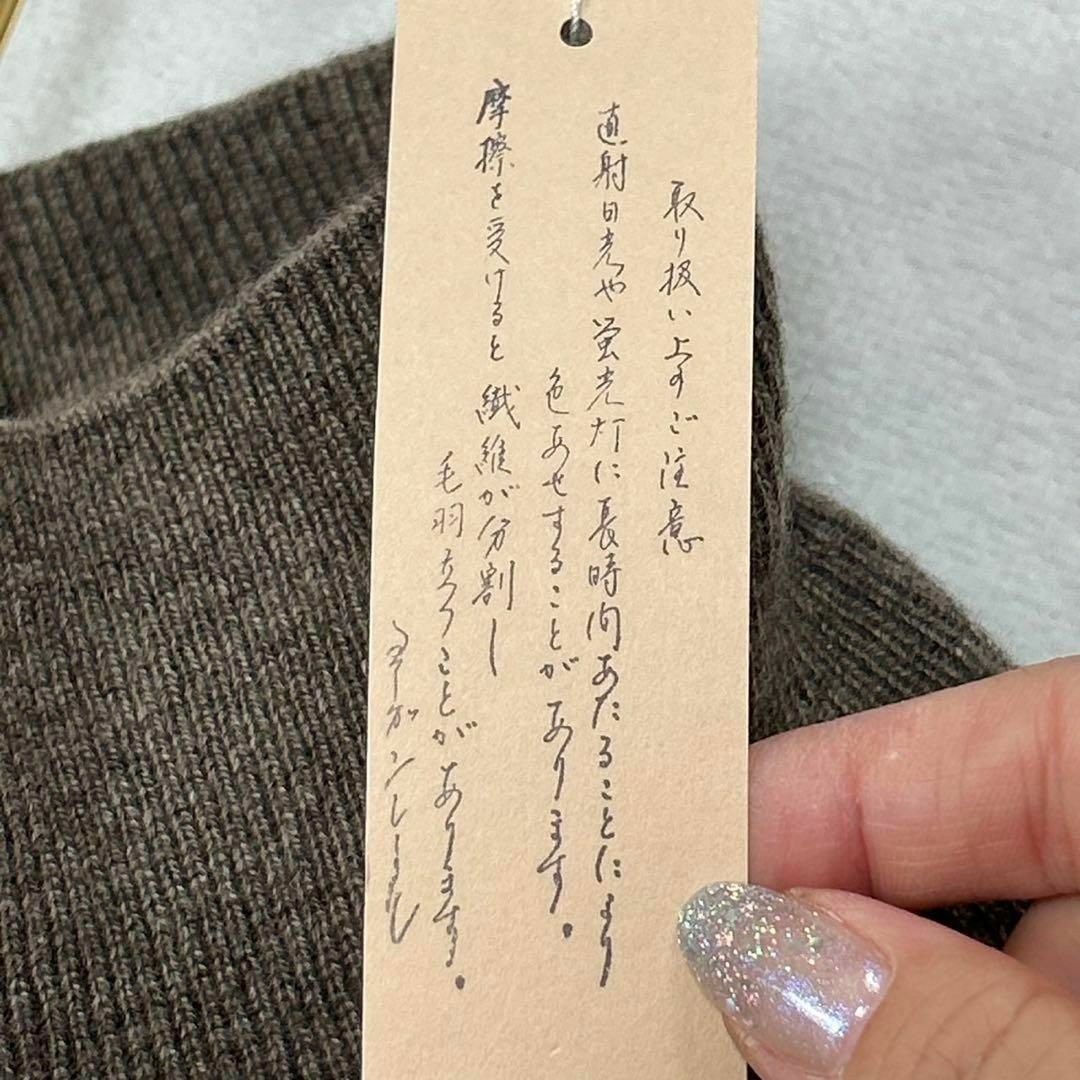 取り扱い上のご注意
直射日光や蛍光灯に長時間あたることにより
色あせすることがあります。
摩擦を受けると繊維が分割し
毛羽立つことがあります。